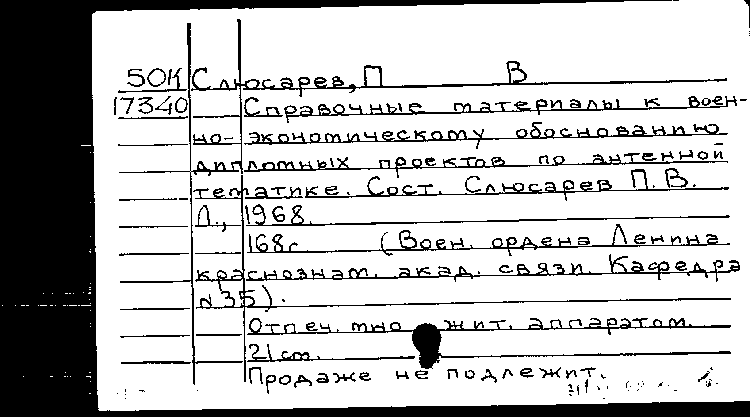 50К Слюсарев, П В
17340 Справочные материалы к воен-
но-экономическому обоснованию
дипломных проектов по антенной
тематике. Сост. Слюсарев П.В.
Л., 1968.
168с (Воен. ордена Ленина
краснознам. акад. связи. Кафедра
N35).
Отпеч. множит. аппаратом.
21 cm.
Продаже не подлежит.